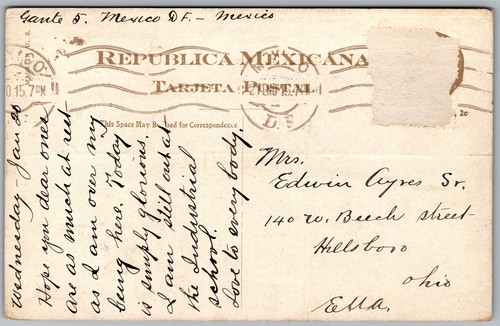 Gante 5. Mexico D.F. - Mexico
REPUBLICA MEXICANA
TARJETA POSTAL
This Space May Be Used for Correspondence
2c
D.F.
Wednesday - Jan 20
Hope you dear ones
are as much at rest
as I am over my
being here. Today
is simply glorious.
I am still out at
the Industrial
school.
Love to every body.
Mrs.
Edwin Ayres Sr.
140 W. Beech street
Hillsboro
Ohio
EUA.